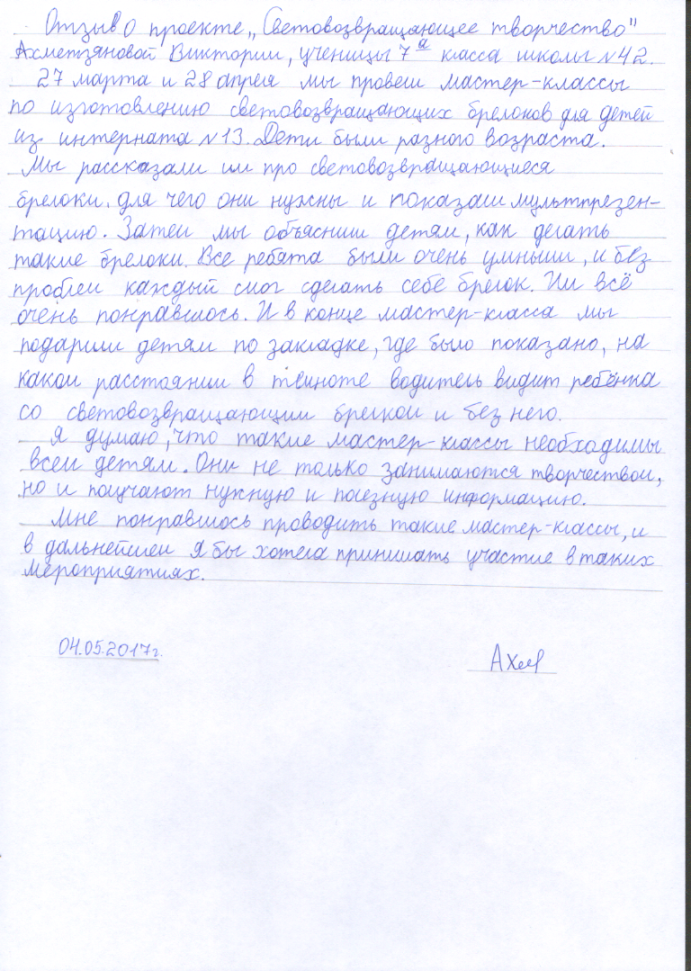 Отзыв о проекте „Световозвращающее творчество"
Ахметзяновой Виктории, ученицы 7а класса школы №42.
27 марта и 28 апреля мы провели мастер-классы
по изготовлению световозвращающих брелоков для детей
из интерната №13. Дети были разного возраста.
Мы рассказали им про световозвращающиеся
брелоки, для чего они нужны и показали мультпрезен-
тацию. Затем мы объяснили детям, как делать
такие брелоки. Все ребята были очень умными, и без
проблем каждый смог сделать себе брелок. Им всё
очень понравилось. И в конце мастер-класса мы
подарили детям по закладке, где было показано, на
каком расстоянии в темноте водитель видит ребёнка
со световозвращающим брелком и без него.
Я думаю, что такие мастер-классы необходимы
всем детям. Они не только занимаются творчеством,
но и получают нужную и полезную информацию.
Мне понравилось проводить такие мастер-классы, и
в дальнейшем я бы хотела принимать участие в таких
мероприятиях.
04.05.2017г.
Ахм